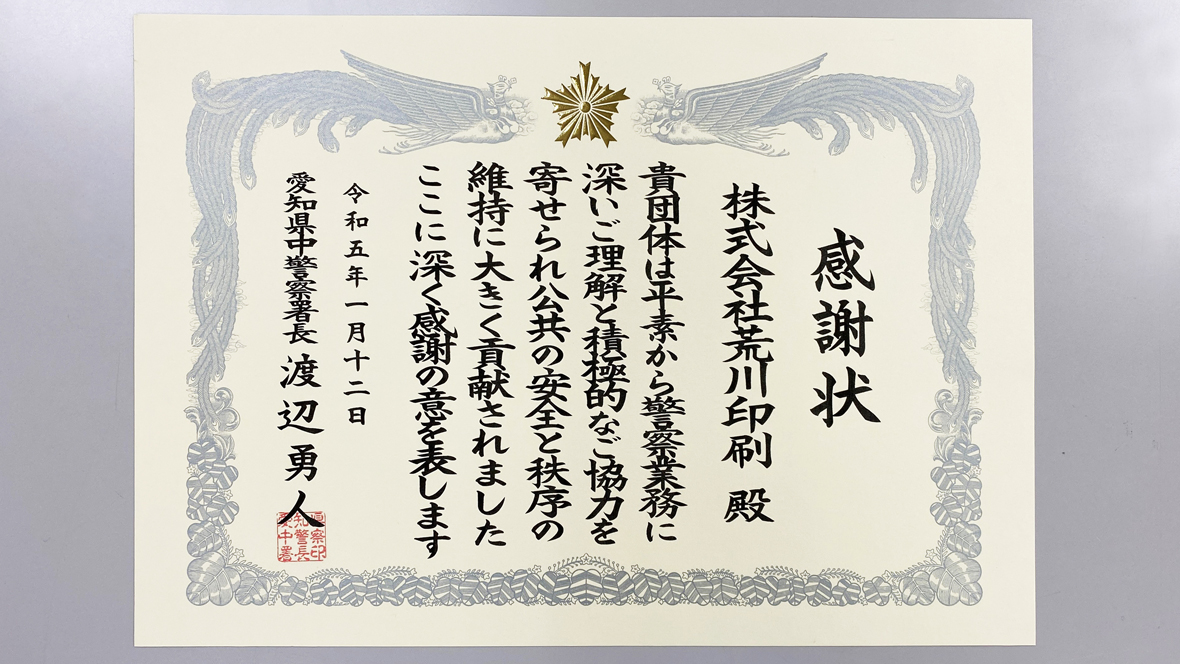 感謝状
株式会社荒川印刷 殿
貴団体は平素から警察業務に
深いご理解と積極的なご協力を
寄せられ公共の安全と秩序の
維持に大きく貢献されました
ここに深く感謝の意を表します
令和五年一月十二日
愛知県中警察署長 渡辺勇人